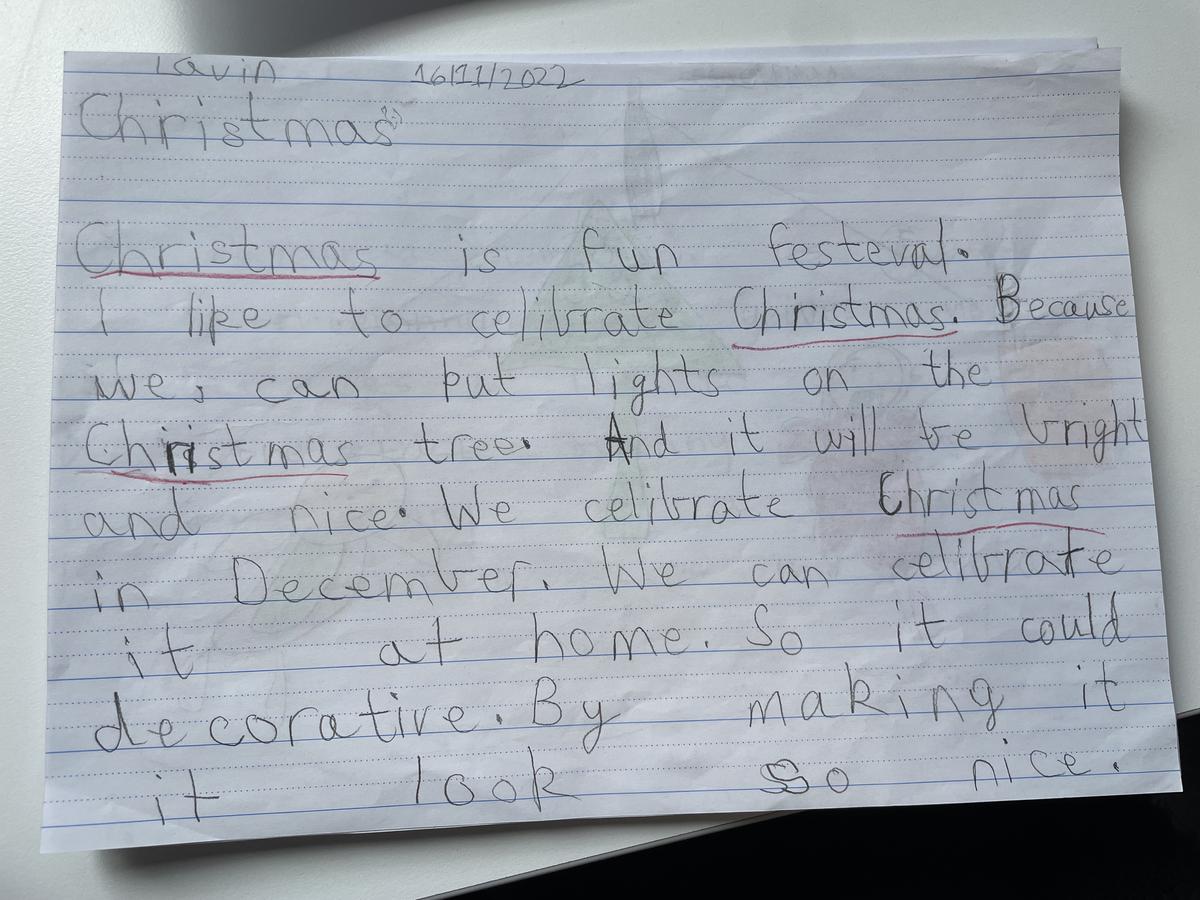 Lavin 16/11/2022
Christmas
Christmas is fun festeval.
I like to celibrate Christmas. Because
we, can put lights on the
Christmas tree. And it will be bright
and nice. We celibrate Christmas
in December. We can celibrate
it at home. So it could
decorative. By making it
it look so nice.